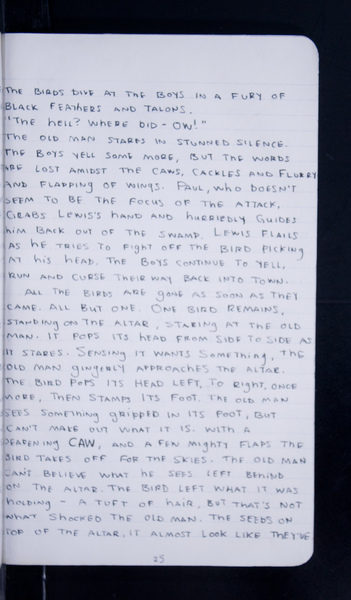 THE BIRDS DIVE AT THE BOYS IN A FURY OF
BLACK FEATHERS AND TALONS.
"THE HELL? WHERE DID - OW!"
THE OLD MAN STARES IN STUNNED SILENCE.
THE BOYS YELL SOME MORE, BUT THE WORDS
ARE LOST AMIDST THE CAWS, CACKLES AND FLURRY
AND FLAPPING OF WINGS. PAUL, WHO DOESN'T
SEEM TO BE THE FOCUS OF THE ATTACK,
GRABS LEWIS'S HAND AND HURRIEDLY GUIDES
HIM BACK OUT OF THE SWAMP. LEWIS FLAILS
AS HE TRIES TO FIGHT OFF THE BIRD PICKING
AT HIS HEAD. THE BOYS CONTINUE TO YELL,
RUN AND CURSE THEIR WAY BACK INTO TOWN.
ALL THE BIRDS ARE GONE AS SOON AS THEY
CAME. ALL BUT ONE. ONE BIRD REMAINS,
STANDING ON THE ALTAR, STARING AT THE OLD
MAN. IT POPS ITS HEAD FROM SIDE TO SIDE AS
IT STARES. SENSING IT WANTS SOMETHING, THE
OLD MAN GINGERLY APPROACHES THE ALTAR.
THE BIRD POPS ITS HEAD LEFT, TO RIGHT, ONCE
MORE, THEN STAMPS ITS FOOT. THE OLD MAN
SEES SOMETHING GRIPPED IN ITS FOOT, BUT
CAN'T MAKE OUT WHAT IT IS. WITH A
DEAFENING CAW, AND A FEW MIGHTY FLAPS THE
BIRD TAKES OFF FOR THE SKIES. THE OLD MAN
CAN'T BELIEVE WHAT HE SEES LEFT BEHIND
ON THE ALTAR. THE BIRD LEFT WHAT IT WAS
HOLDING - A TUFT OF HAIR, BUT THAT'S NOT
WHAT SHOCKED THE OLD MAN. THE SEEDS ON
TOP OF THE ALTAR, IT ALMOST LOOK LIKE THEY'VE
25